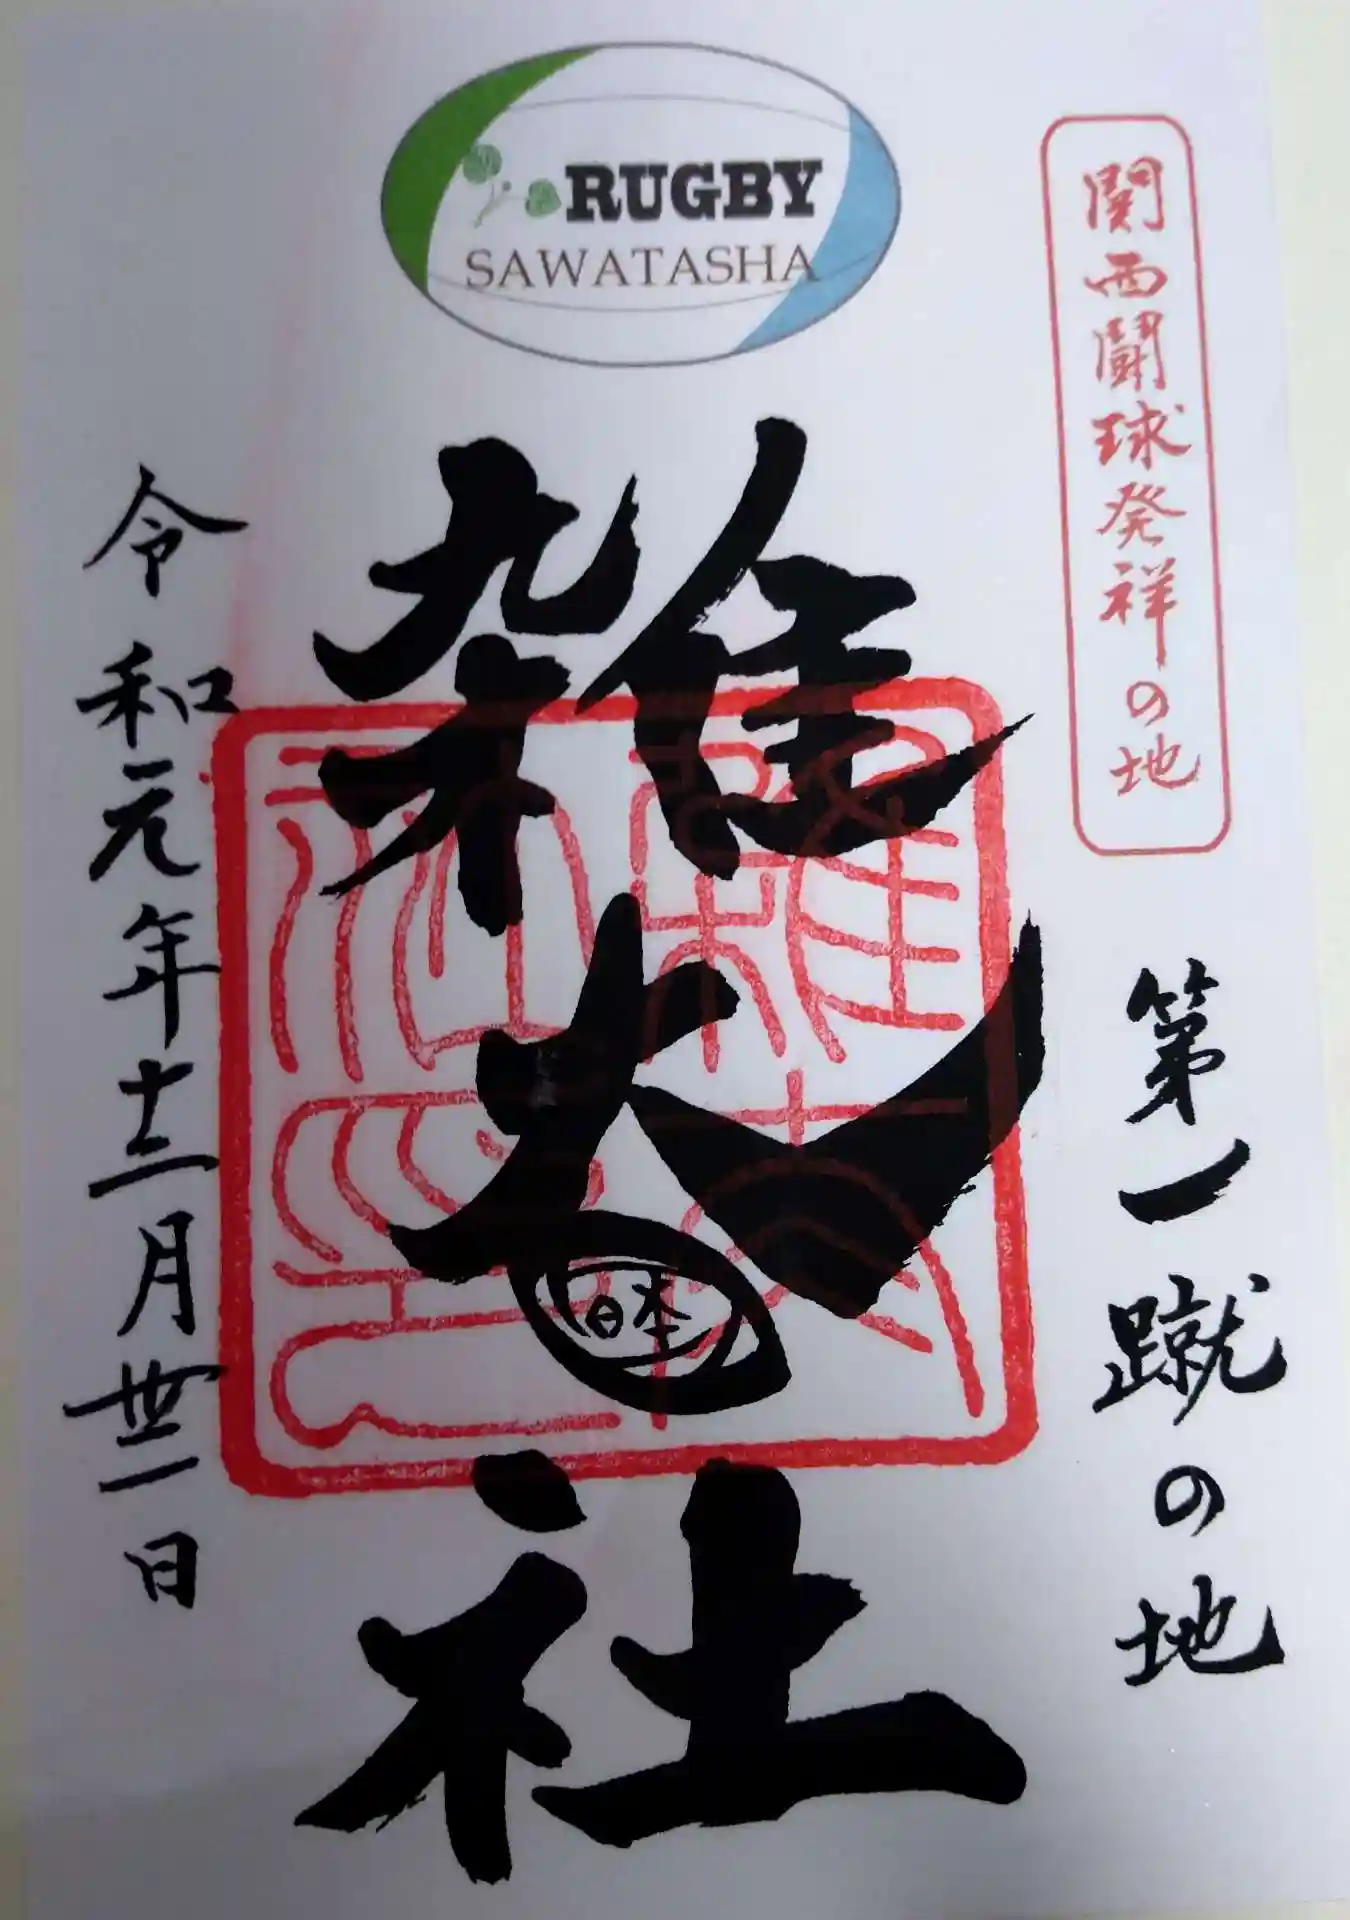 RUGBY
SAWATASHA
関西闘球発祥の地
第一蹴の地
雑太社
日本
令和元年十二月丗一日